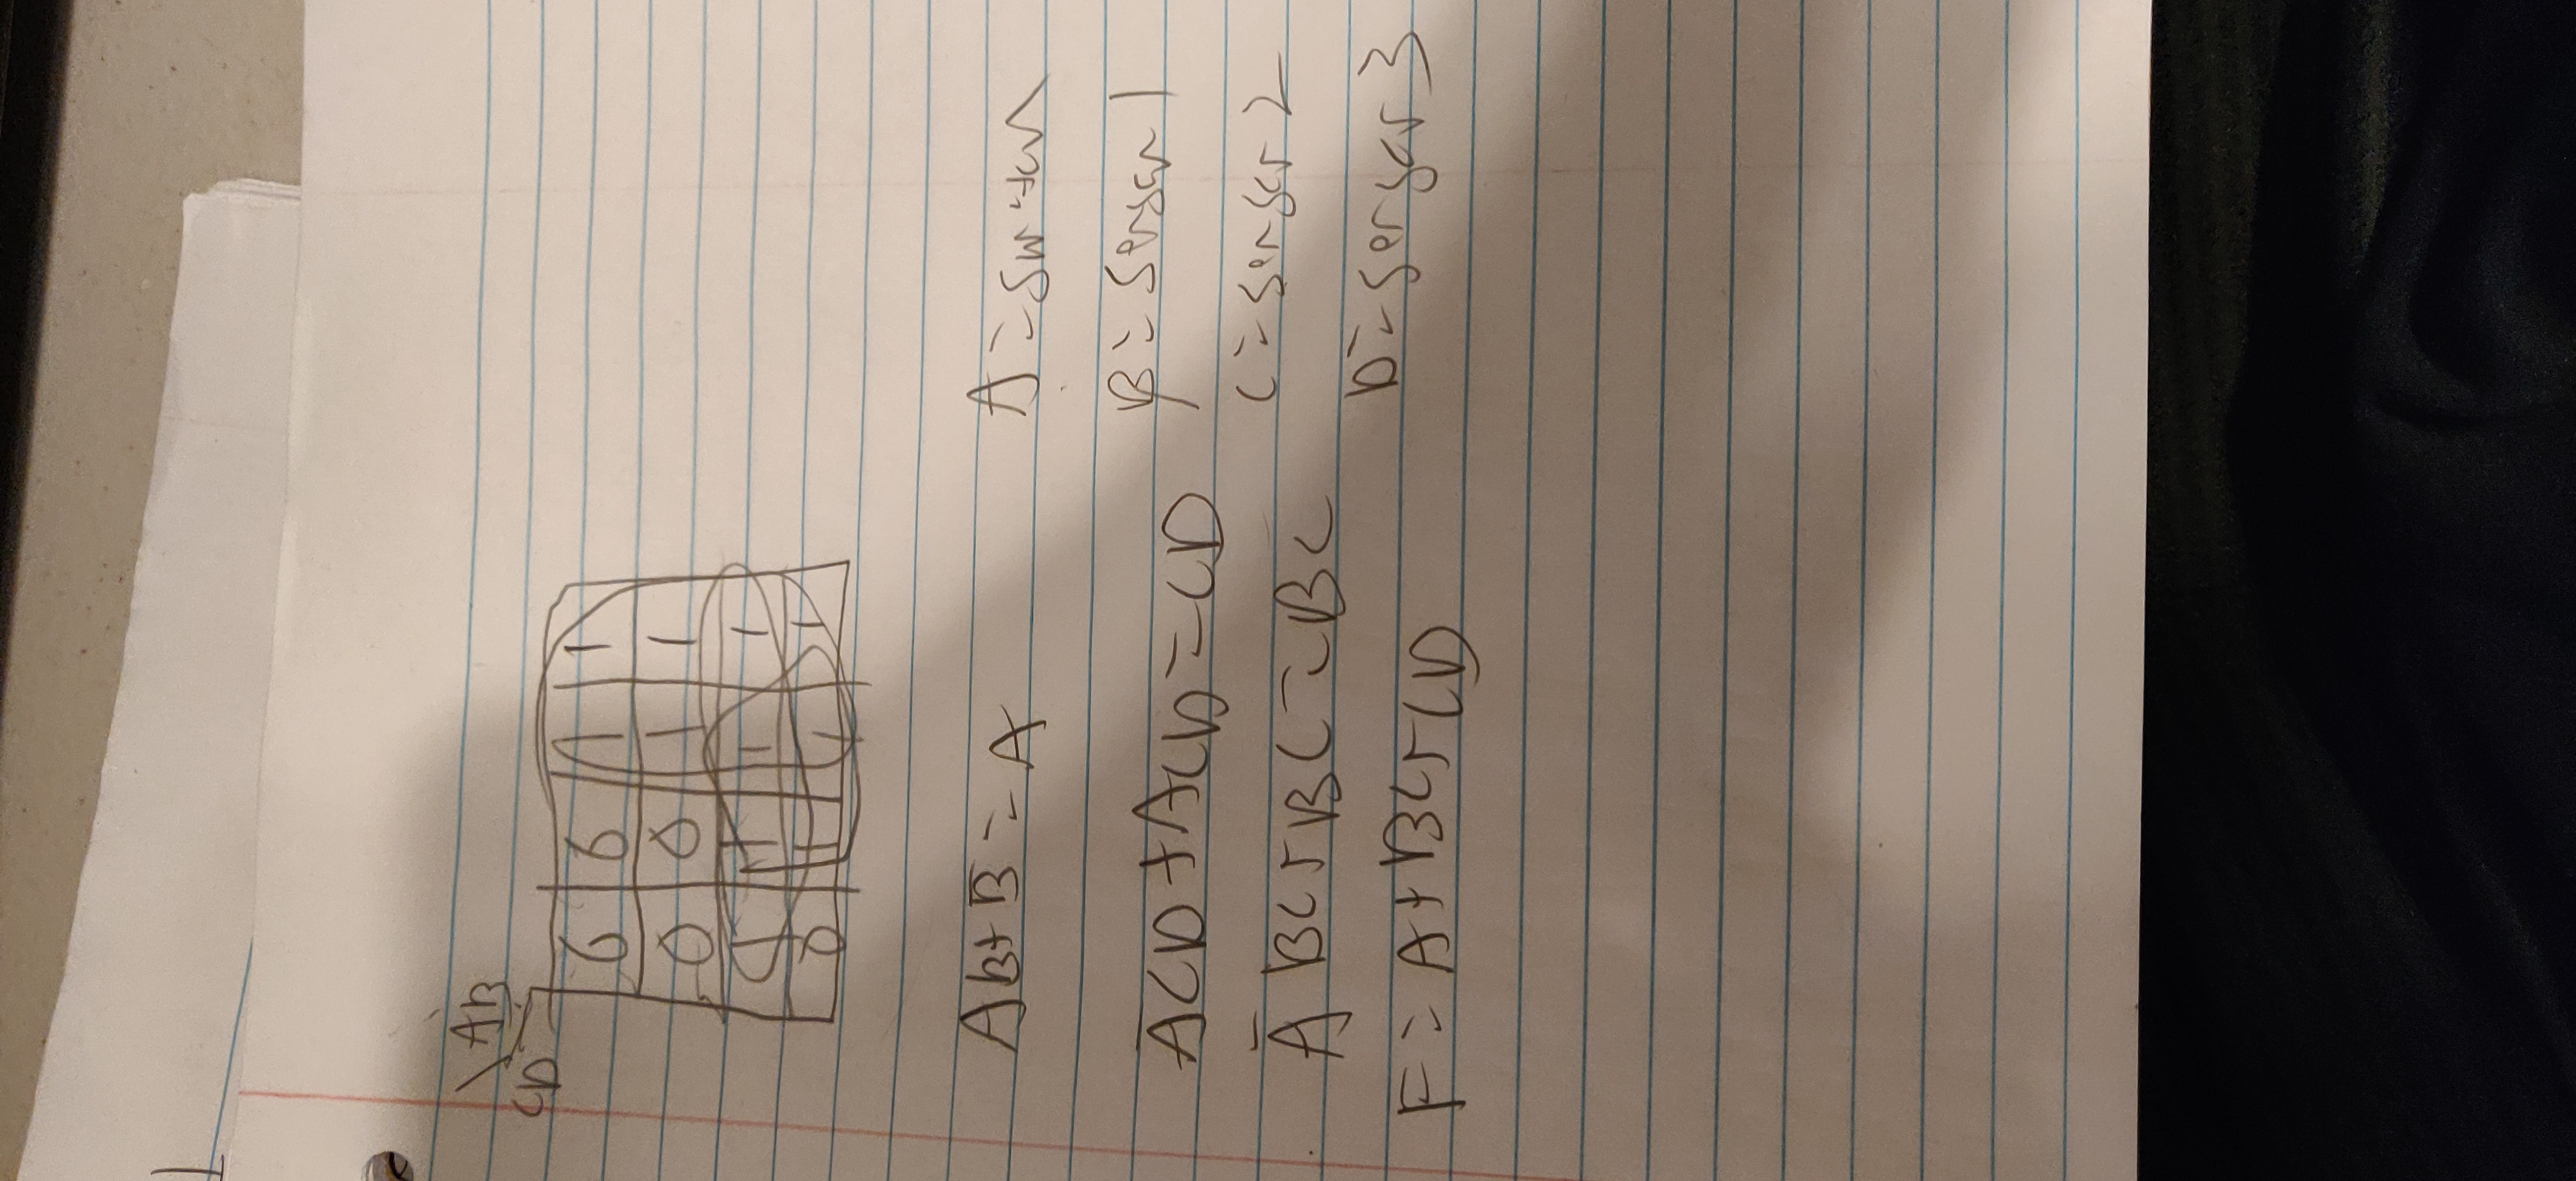 1
AB
CD
0 0 1 1
0 0 1 1
1 1 1 1
0 1 1 1
AB+B̅=A
A̅CD+ACD=CD
A̅ BC+BC=BC
F=A+BC+CD
A=Switch
B=Sensor 1
C=Sensor 2
D=Sensor 3